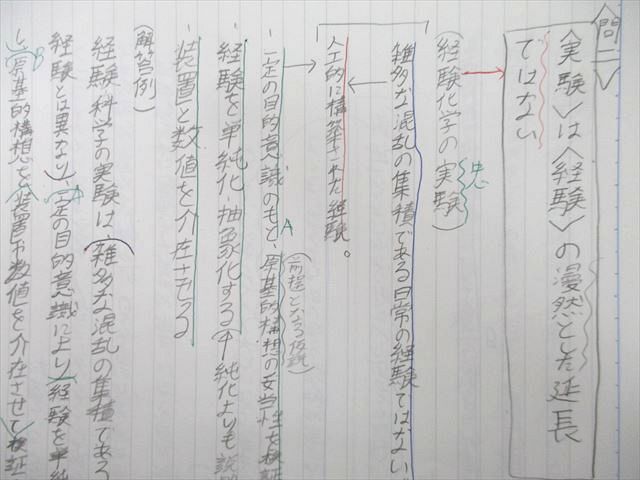 〈問二〉
〈実験〉は〈経験〉の漫然とした延長
ではない
(経験化学の実験)
雑多な混乱の集積である日常の経験ではない。
人工的に構築された経験。
一定の目的意識のもと、原基的構想の妥当性を検証
A
(前提となる仮説)
経験を単純化・抽象化する
純化よりも説
装置と数値を介在させる
(解答例)
経験科学の実験は、雑多な混乱の集積である
経験とは異なり、一定の目的意識により経験を単純
A
B
し、原基的構想を装置や数値を介在させて検証